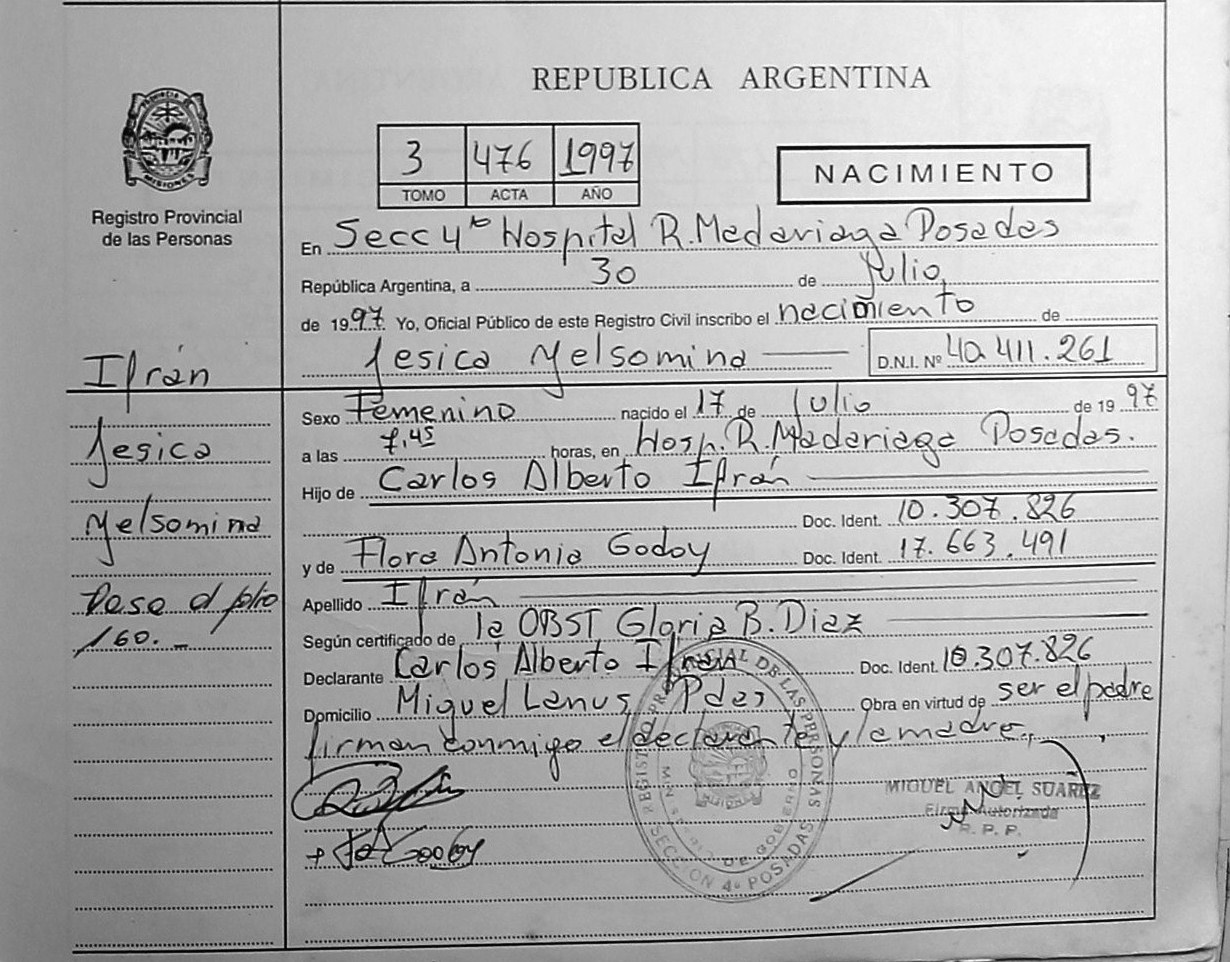 REPUBLICA ARGENTINA
PROVINCIA DE
MISIONES
Registro Provincial
de las Personas
3 476 1997
TOMO ACTA AÑO
NACIMIENTO
En Secc 4ta Hospital R. Madariaga Posadas
República Argentina, a 30 de Julio
de 1997. Yo, Oficial Público de este Registro Civil inscribo el nacimiento de
Jesica Yelsomina D.N.I. Nº 40.411.261
Ifrán
Jesica
Yelsomina
Pasa al folio
160.-
Sexo Femenino nacido el 17 de Julio de 1997
a las 7,45 horas, en Hosp. R. Madariaga Posadas.
Hijo de Carlos Alberto Ifrán
Doc. Ident. 10.307.826
y de Flora Antonia Godoy Doc. Ident. 17.663.491
Apellido Ifrán
Según certificado de la OBST Gloria B. Diaz
Declarante Carlos Alberto Ifran Doc. Ident. 10.307.826
Domicilio Miguel Lanus Pdas Obra en virtud de ser el padre
firman conmigo el declarante y la madre.
REGISTRO PROVINCIAL DE LAS PERSONAS
SECCION 4ª POSADAS
DE GOBIERNO
MIGUEL ANGEL SUAREZ
Firma Autorizada
R. P. P.
Godoy